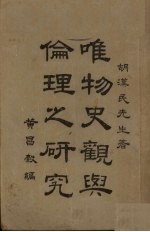 胡漢民先生著
唯物史觀與
倫理之研究
黃昌穀編